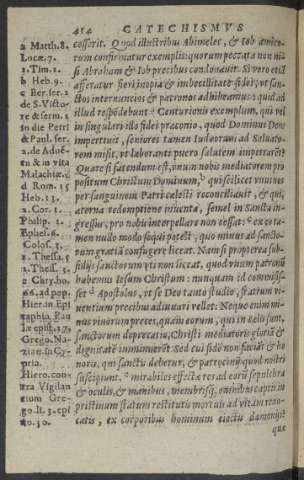 414 CATECHISMVS
a Matth. 8.
Lucæ. 7.
1. Tim. 2.
b Heb. 9.
c Ber. ser. 2
de S. Victo-
re & serm. 1
in die Petri
& Paul. ser.
2. de Aduẽ-
tu & in vita
Malachiæ.
d Rom. 15
Heb. 13.
2. Cor. 1.
Philip. 2.
Ephes. 6.
Colos. 3.
1. Thessa. 5
2. Thess. 5.
e Chry. ho.
66. ad pop.
Hier. in Epi
taphia. Pau
læ epist. 27.
Grego. Na-
zian. in Cy-
pria.
Hiero. con-
tra Vigilan
tium Greg
go. li. 3. epi
sto. 30.
cesserit. Quod illustribus Abimelec, & Iob amico-
rum confirmatur exemplis: quorum peccata non ni-
si Abraham & Iob precibus condonauit. Si vero etiã
afferatur fieri inopia & imbecillitate fidei, vt san-
ctos internuncios & patronos adhibeamus: quid ad
illud respõdebunt? Centurionis exemplum, qui vel
in singulari illo fidei præconio, quod Dominus Deus
impertiuit, seniores tamen Iudæorum ad Saluato-
rem misit, vt laboranti puero salutem impetrarẽt
Quare si fatendum est, vnum nobis mediatorem pro
positum Christum Dominum, qui scilicet vnus nos
per sanguinem Patri cælesti reconciliauit, & qui,
æterna redemptione inuenta, semel in Sancta in-
gressus, pro nobis interpellare non cessat: ex eo ta-
men nullo modo sequi potest, quo minus ad sancto-
rum gratiã confugere liceat. Nam si propterea sub-
sidijs sanctorum vti non liceat, quod vnum patronũ
habemus Iesum Christum: nunquam id commisis-
set Apostolus, vt se Deo tanto studio, fratrum vi-
uentium precibus adiutari vellet. Neque enim mi-
nus viuorum preces, quàm eorum, qui in cælis sunt,
sanctorum deprecatio, Christi mediatoris gloriã &
dignitatẽ imminuerẽt. Sed cui fidẽ non faciãt & ho
noris, qui sanctis debetur, & patrocinij quod nostri
suscipiunt, mirabiles effectæ res ad eorũ sepulchra
& oculis, & manibus, membrisq; omnibus captis in
pristinum statum restitutis mortuis ad vitam reuo-
catis, ex corporibus hominum eiectis dæmonijs
que